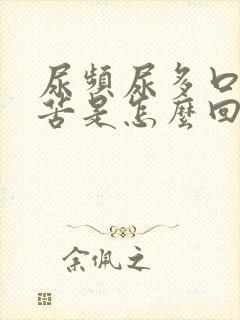 尿頻尿多口
苦是怎麼回
余佩之